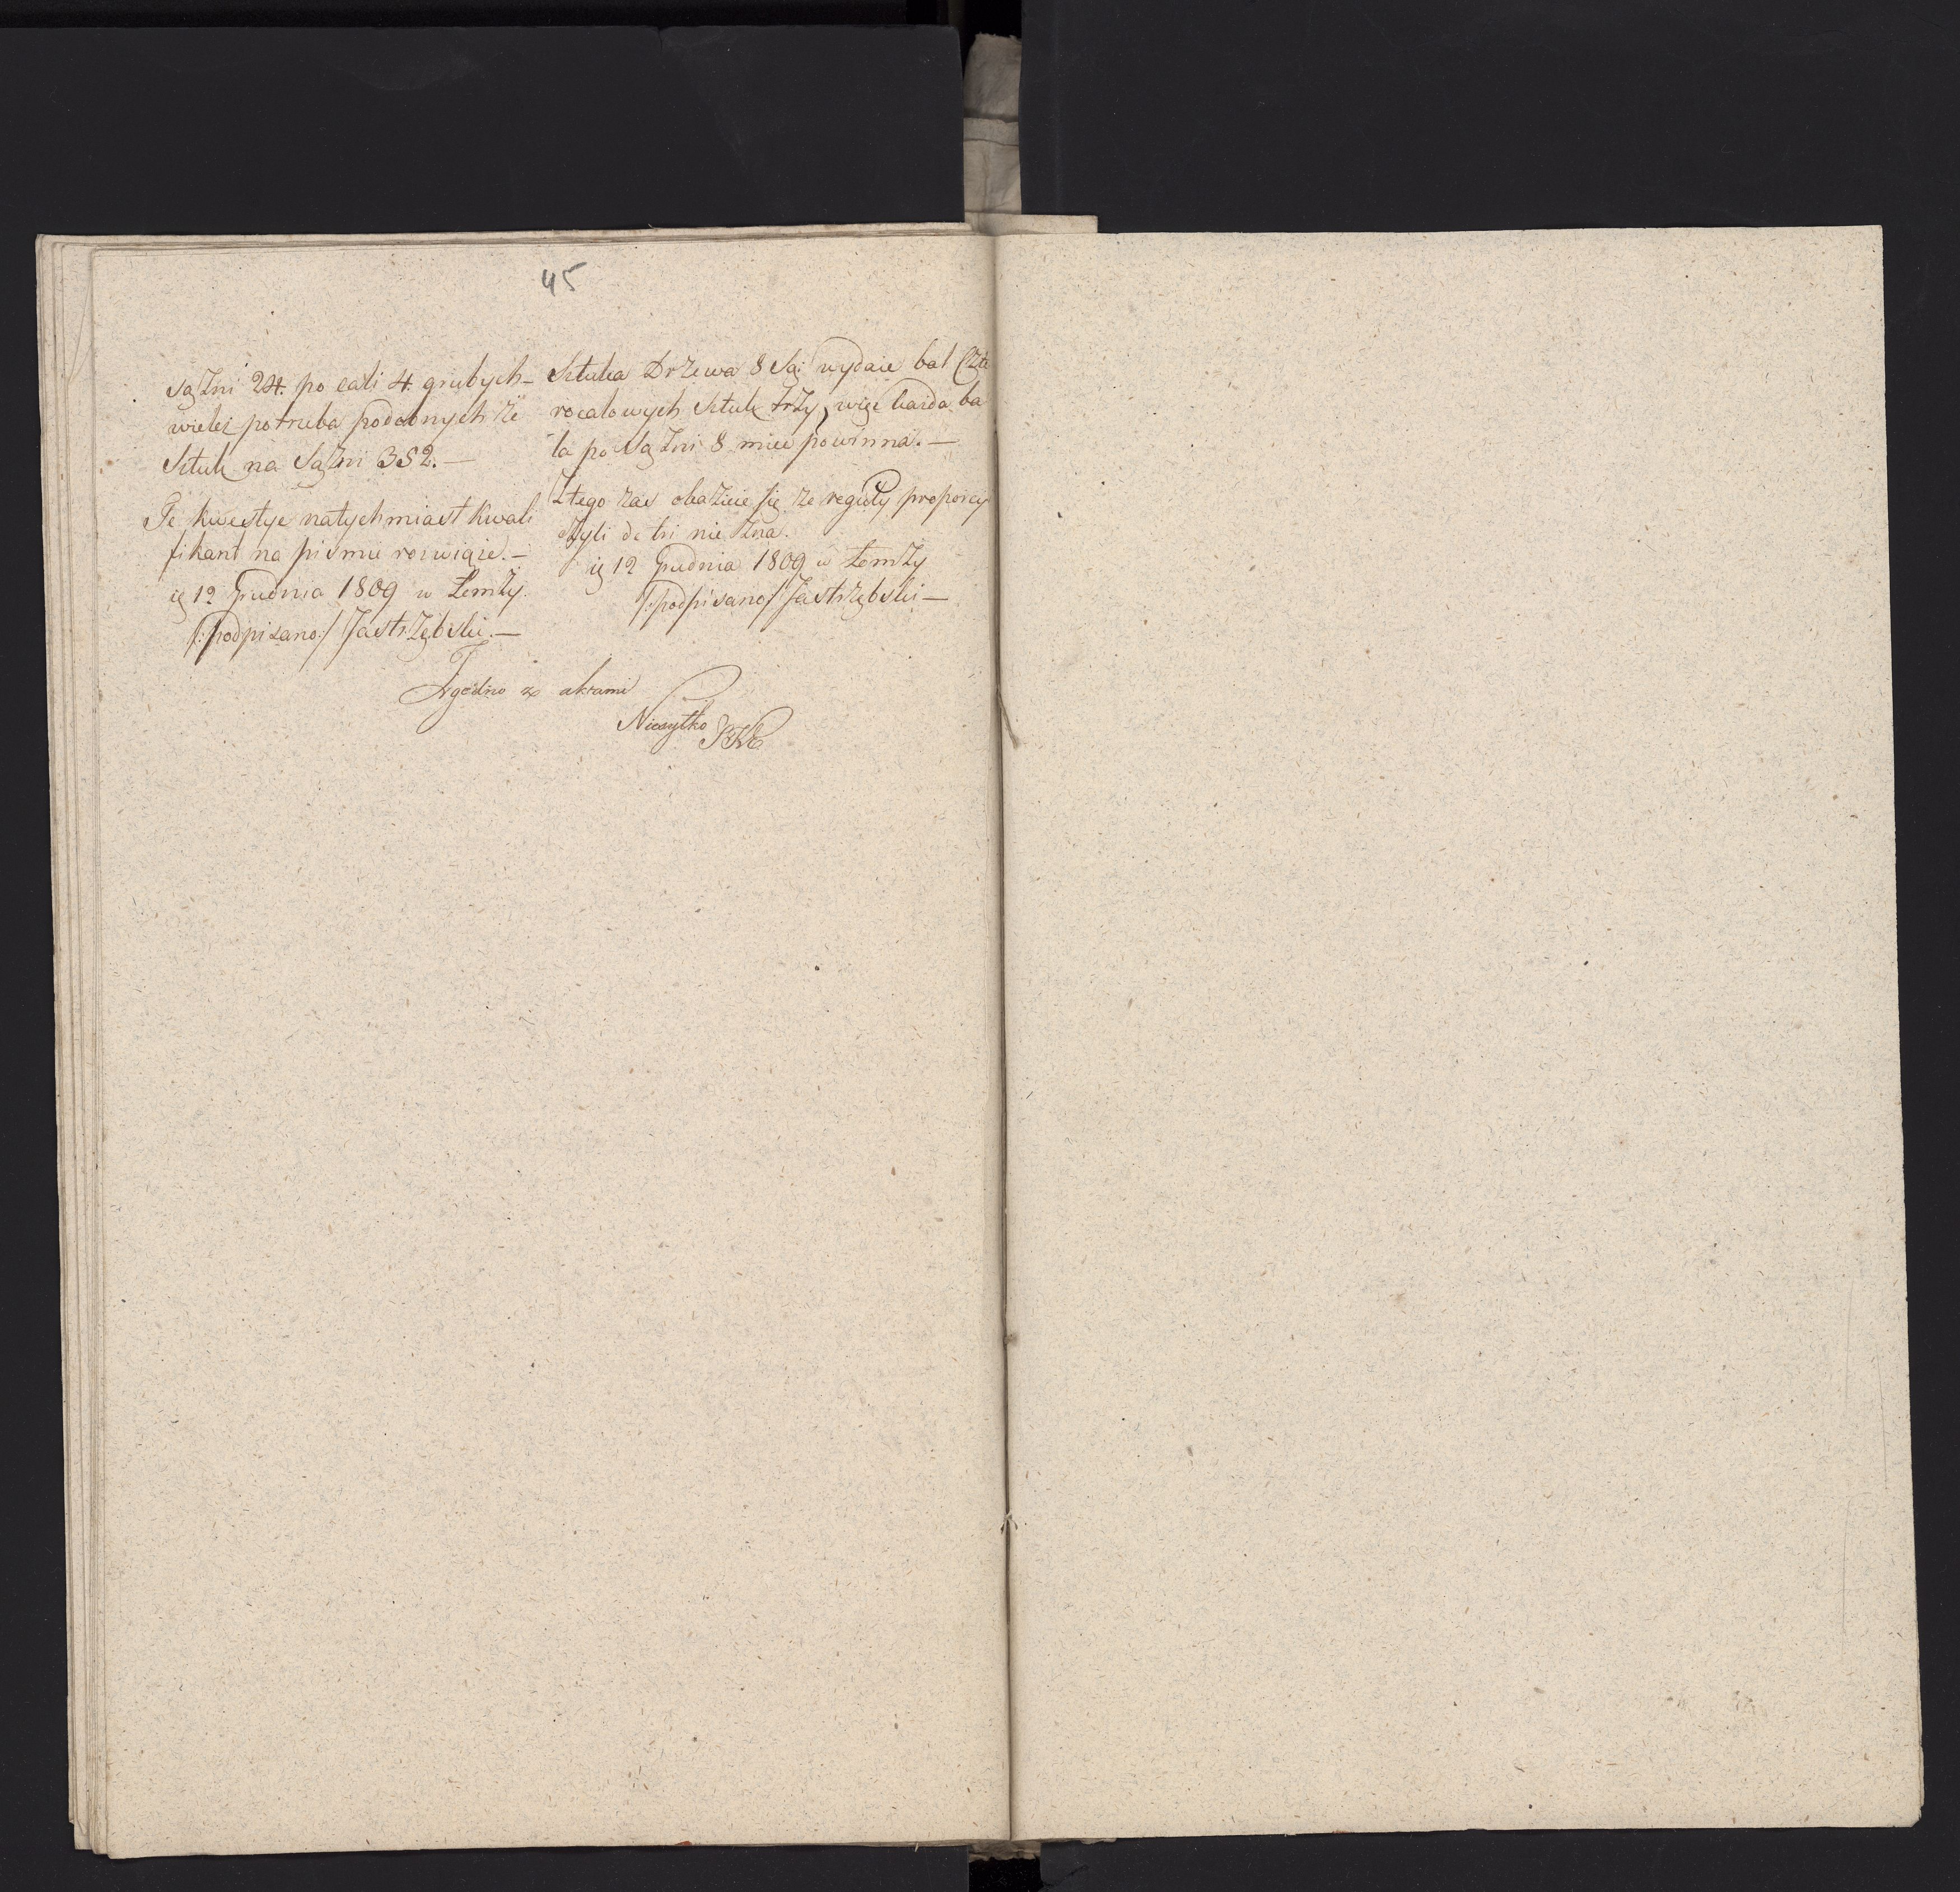 45
sążni 24. po cali 4. grubych –
wieleż potrzeba podobnych że
Sztuk na Sążni 352. –
Te kwestye natychmiast kwali
fikant na pismie rozwiąże. –
ię 12 Grudnia 1809 w Łomży.
/: podpisano:/ Jastrzębski. –
Sztuka Drzewa 8 Sąż: wydaie bal Czte
rocalowych Sztuk trzy, więc każda ba
la po Sążni 8 mieć powinna. –
Z tego zaś okazuie się że reguły proporcy
czyli de tri nie zna.
ię 12 Grudnia 1809 w Łomży
/: podpisano/ Jastrzębski –
Zgodno z aktami